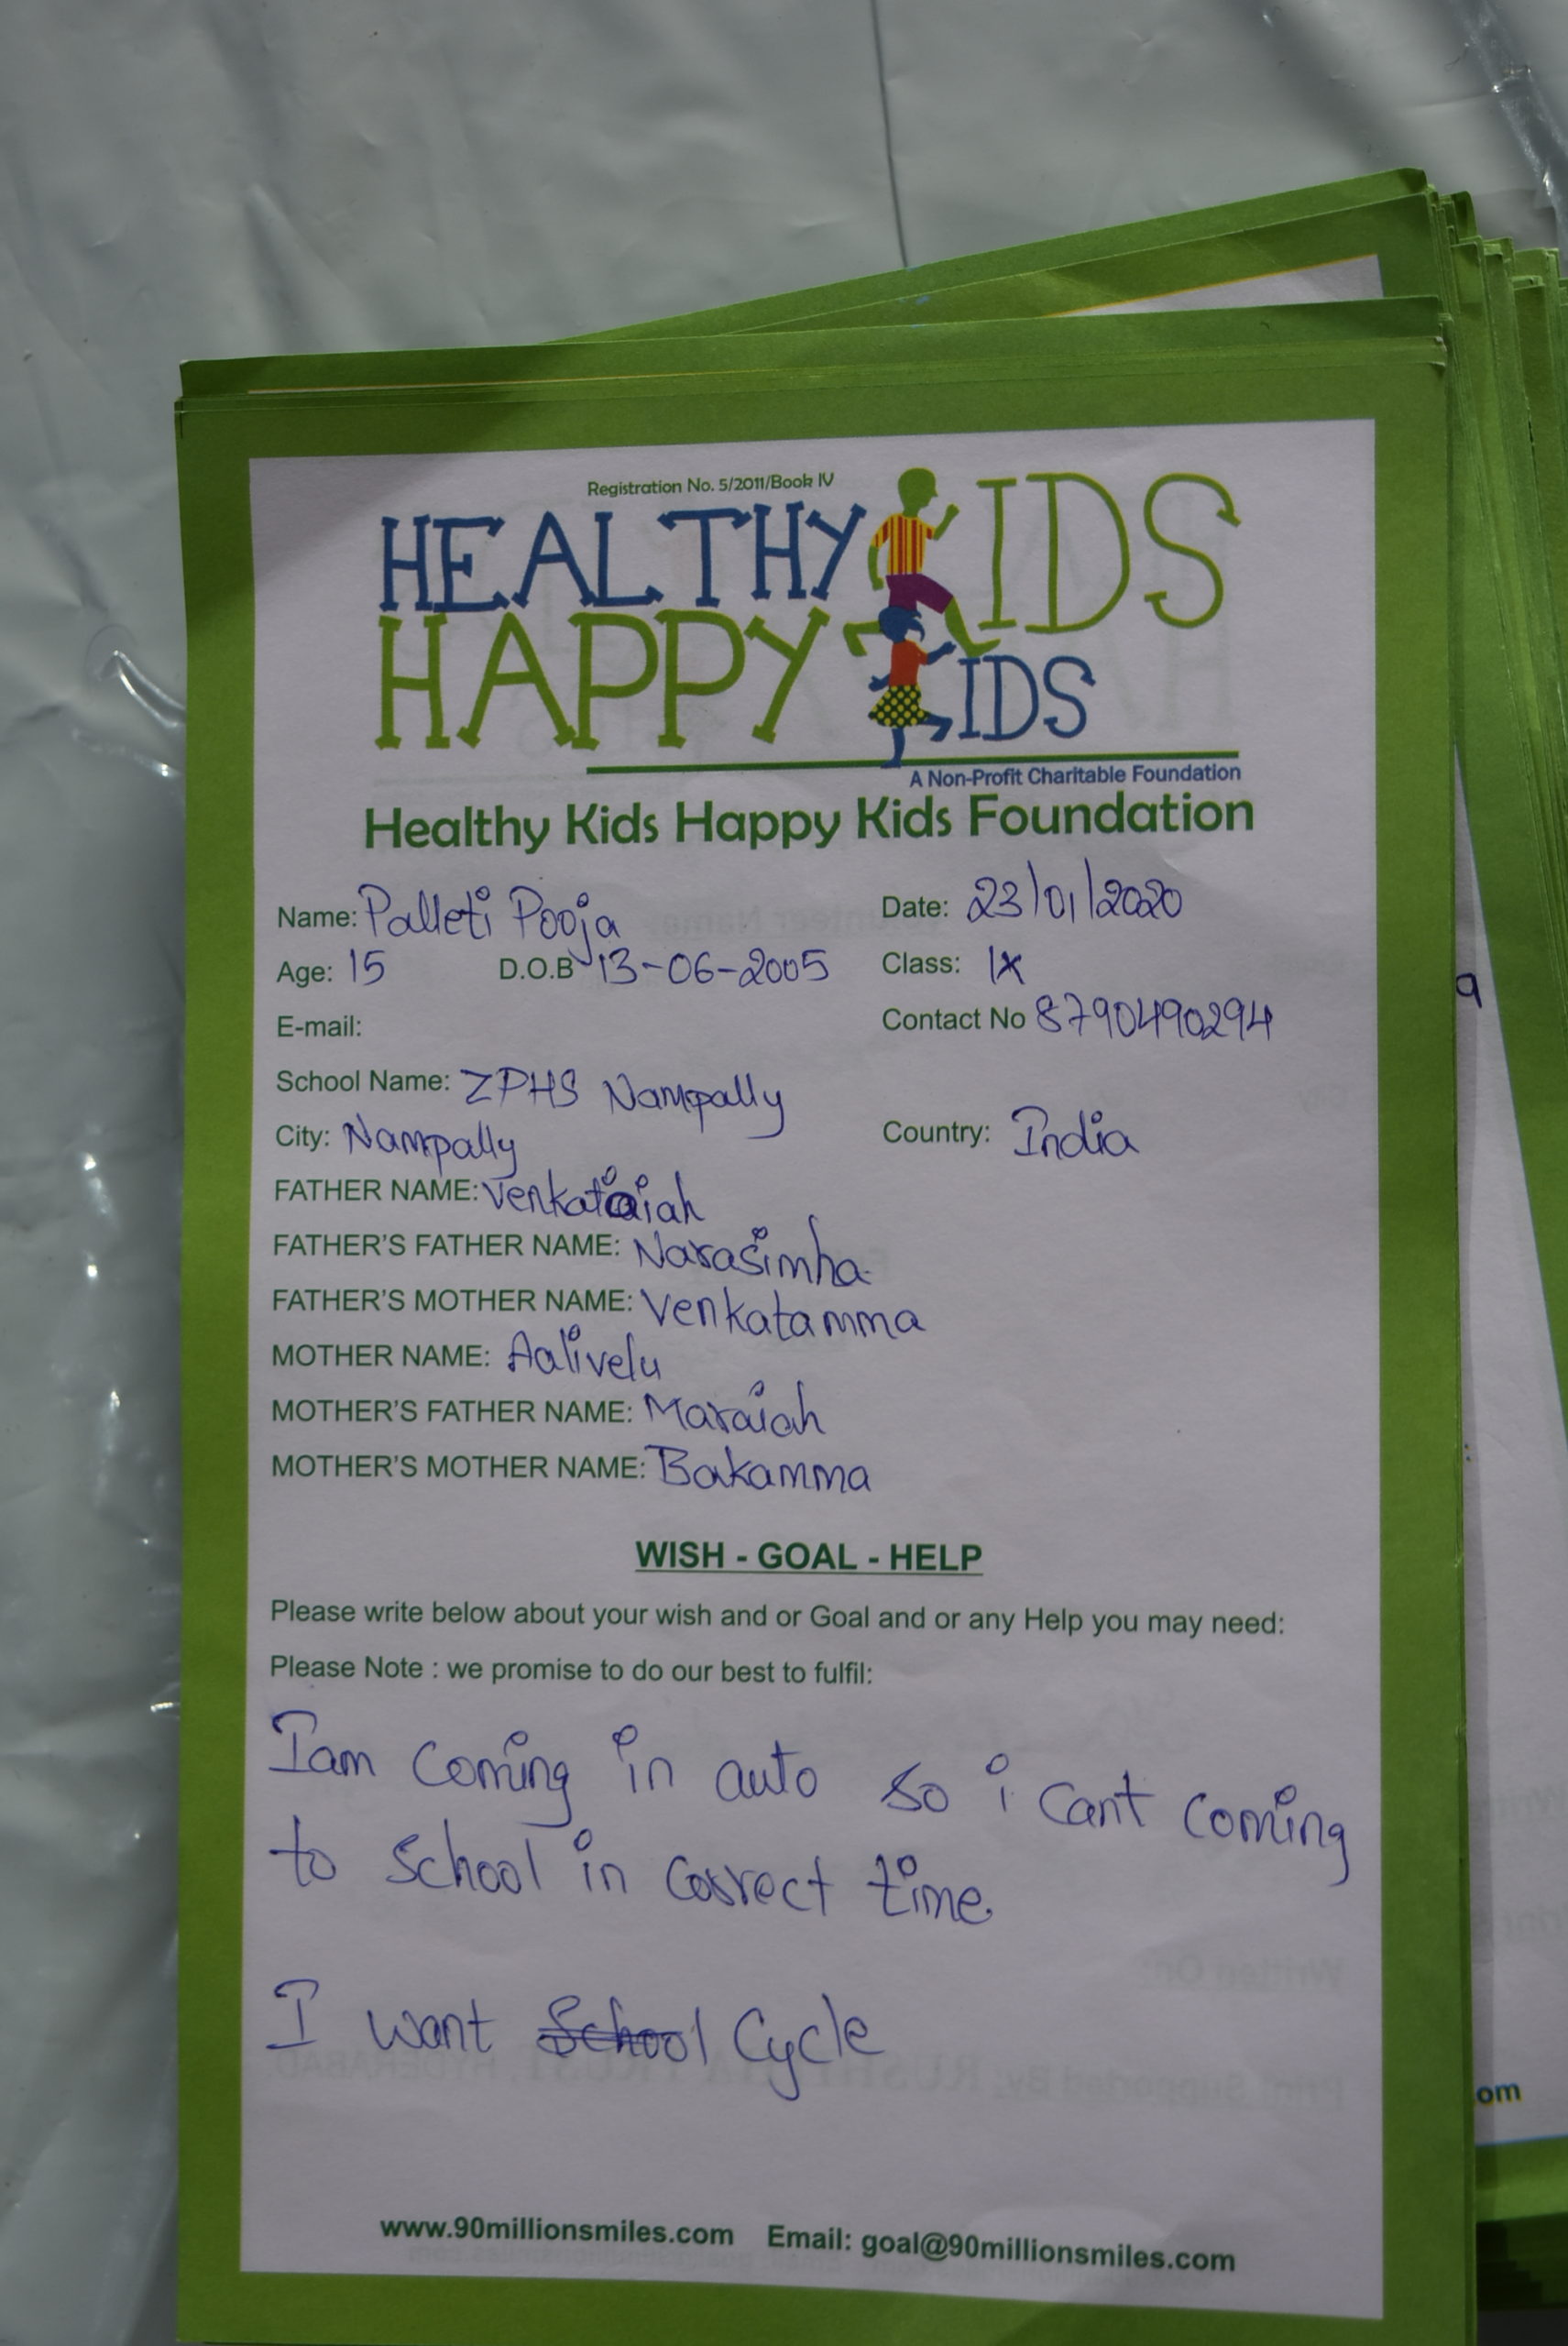 Registration No. 5/2011/Book IV
HEALTHY KIDS
HAPPY KIDS
A Non-Profit Charitable Foundation
Healthy Kids Happy Kids Foundation
Name: Palleti Pooja Date: 23/01/2020
Age: 15 D.O.B 13-06-2005 Class: IX
E-mail: Contact No 8790490294
School Name: ZPHS Nampally
City: Nampally Country: India
FATHER NAME: Venkataiah
FATHER'S FATHER NAME: Narasimha
FATHER'S MOTHER NAME: Venkatamma
MOTHER NAME: Aalivelu
MOTHER'S FATHER NAME: Maraiah
MOTHER'S MOTHER NAME: Bakamma
WISH - GOAL - HELP
Please write below about your wish and or Goal and or any Help you may need:
Please Note : we promise to do our best to fulfil:
Iam coming in auto so i cant coming
to school in correct time
I want School Cycle
www.90millionsmiles.com Email: goal@90millionsmiles.com